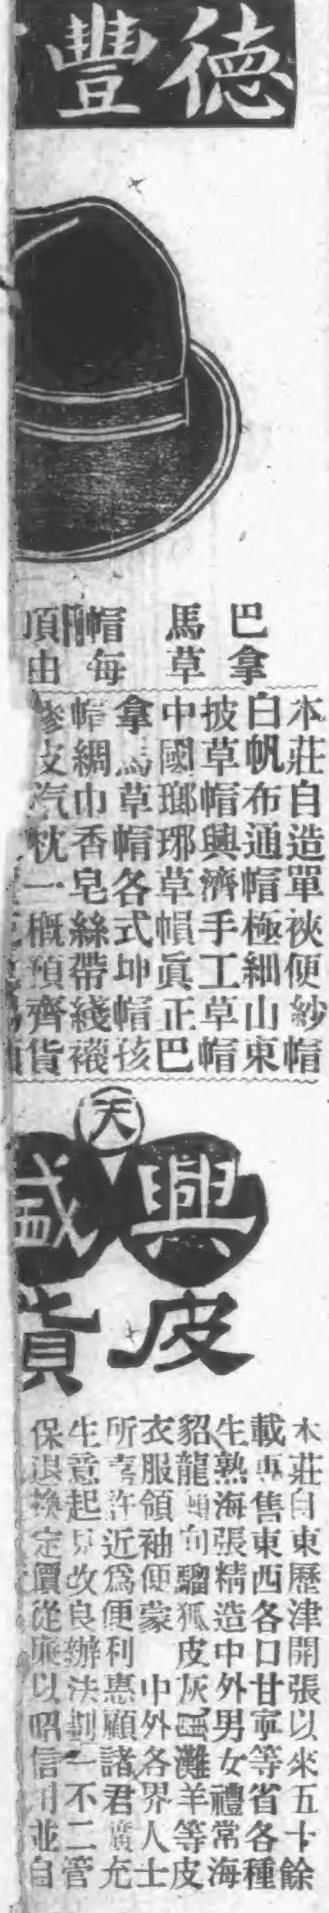 德豐
巴拿
馬草
帽每
頂由
本莊自造單夾便紗帽
白帆布通帽極細山東
披草帽興濟手工草帽
中國瑯琊草帽眞正巴
拿馬草帽各式坤帽孩
帽綢巾香皂絲帶綫襪
皮汽枕一概預齊貨
天
興盛
皮貨
本莊自東歷津開張以來五十餘
載專售東西各口甘寧等省各種
生熟海張精造中外男女禮常海
貂龍頭狐皮灰灘羊等皮
衣服領袖便蒙 中外各界人士
所喜許近爲便利惠顧諸君廣充
生意起見改良辦法劃一不二管
保退換定價從廉以昭信用並自